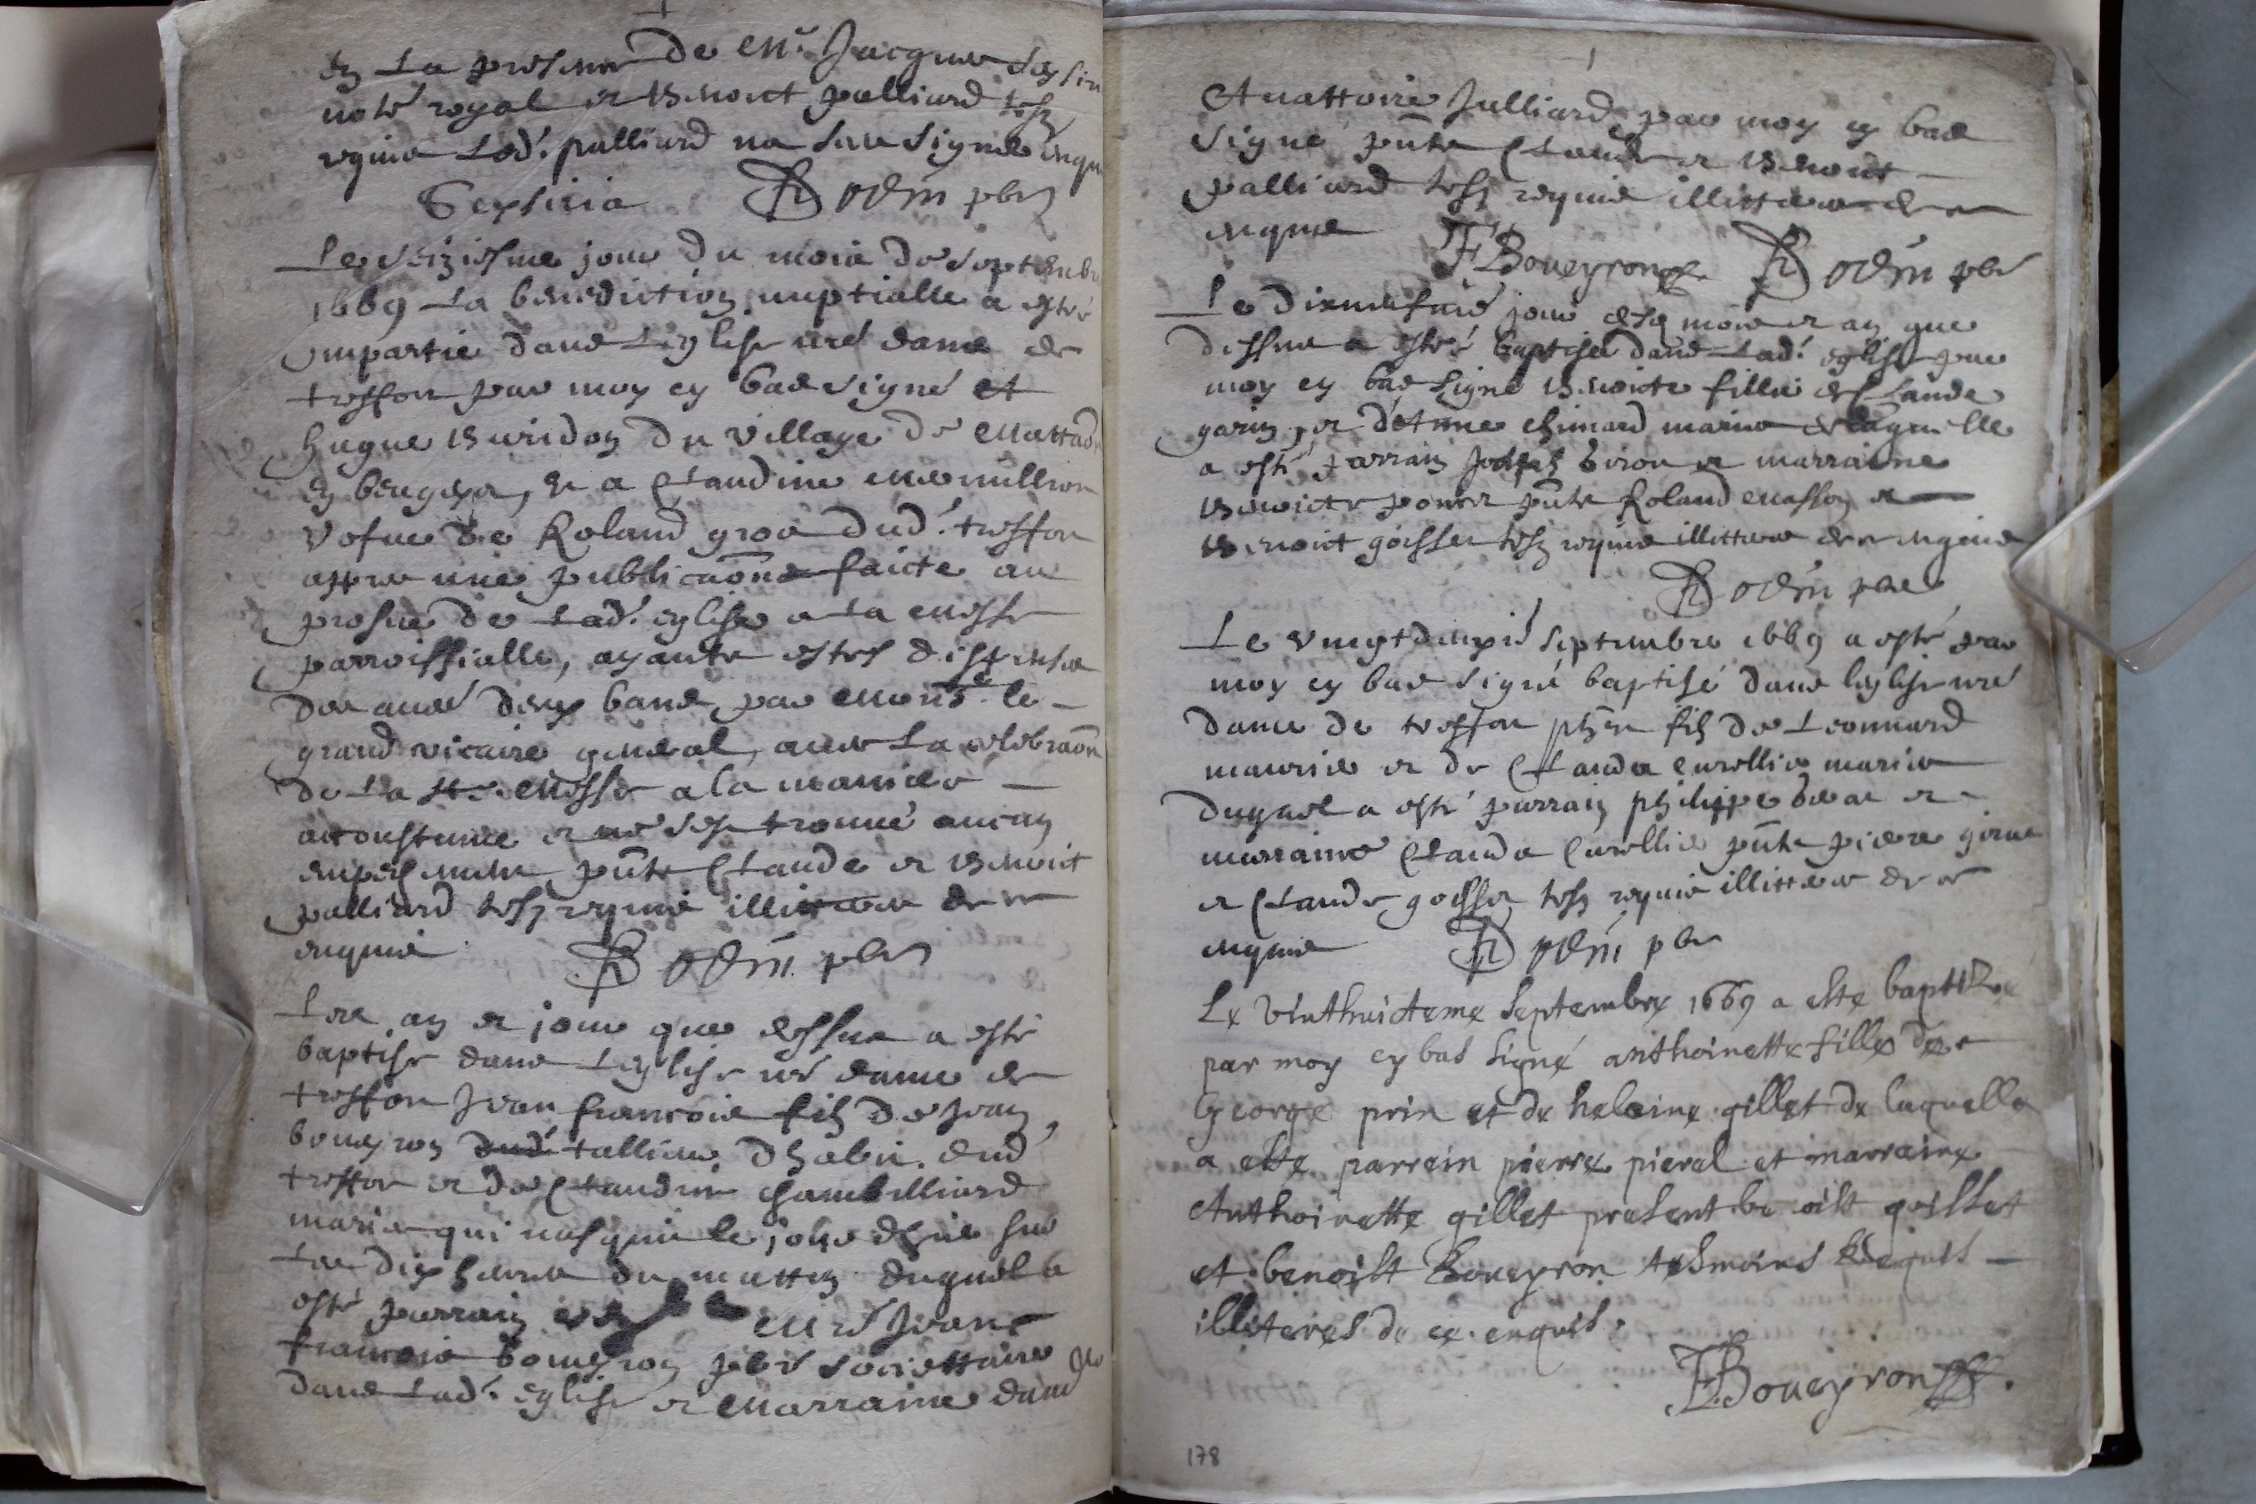 en la presence de Me Jacques
notre royal et Benoict palliard tesz
requis led. palliard na sceu signer enquis
Sepsicia Bodin pbr
Le seiziesme jour du mois de septembre
1669 la benediction nuptialle a esté
impartie dans leglise nre dame de
treffort par moy cy bas signé et
hugue Buridon du village de
en bengeya, et a Claudine
vefue de Roland gros dud. treffort
appres une publicaõns faicte au
prosne de lad. eglise a la messe
parroissialle, ayants estes dispensés
des autres deux bans, par Monsr le
grand vicaire general, auec la celebraõn
de la Ste Messe a la maniere
accoustumee et ne sest trouué aucun
empeschement pñts Claude et Benoict
palliard tesz requis illitteres de ce
enquis Bodin pbr
Les an et jour que dessus a esté
baptisé dans leglise nre dame de
treffort Jean francois fils de Jean
boueyron dud. tallieur dhabis dud
treffort et de Claudine chambilliard
mariés qui nasquit le jour dhier sur
les dix heures du mattin duquel a
esté parrain Mre Jean
francois boueyron pbr societtaire
dans lad. eglise et Marraine dame
Anattoire Julliard par moy cy bas
signé pñts Claude et Benoict
palliard tesz requis illitteres de ce
enquis FBoueyron Bodin pbr
Le dixneufuie jour desd mois et an que
dessus a esté baptisée dans lad. eglise par
moy cy bas signé Benoicte fille de Claude
garin, et detiene chinard mariés de laquelle
a esté parrain Joseph biron et marraine
Benoicte poncet pñts Roland Masson et
Benoict goisset tesz requis illitteres de ce enquis
Bodin pbr
Le vingtdeuxie septembre 1669 a esté par
moy cy bas signé baptisé dans leglise nre
dame de treffort phe fils de Leonnard
maurice et de Clauda curellie mariés
duquel a esté parrain philippe et
marraine Clauda Curellie pñts piere
et Claude goisset tesz requis illitteres de ce
enquis Bodin pbr
Le vinthuicteme septembre 1669 a este baptizée
par moy cy bas signé anthoinette fille de
George prin et de heleine gillet de laquelle
a este parrein pierre pieral et marraine
Anthoinette gillet present benoist goisset
et benoist Boueyron tesmoins requis
illiteres de ce enquis.
FBoueyron
178